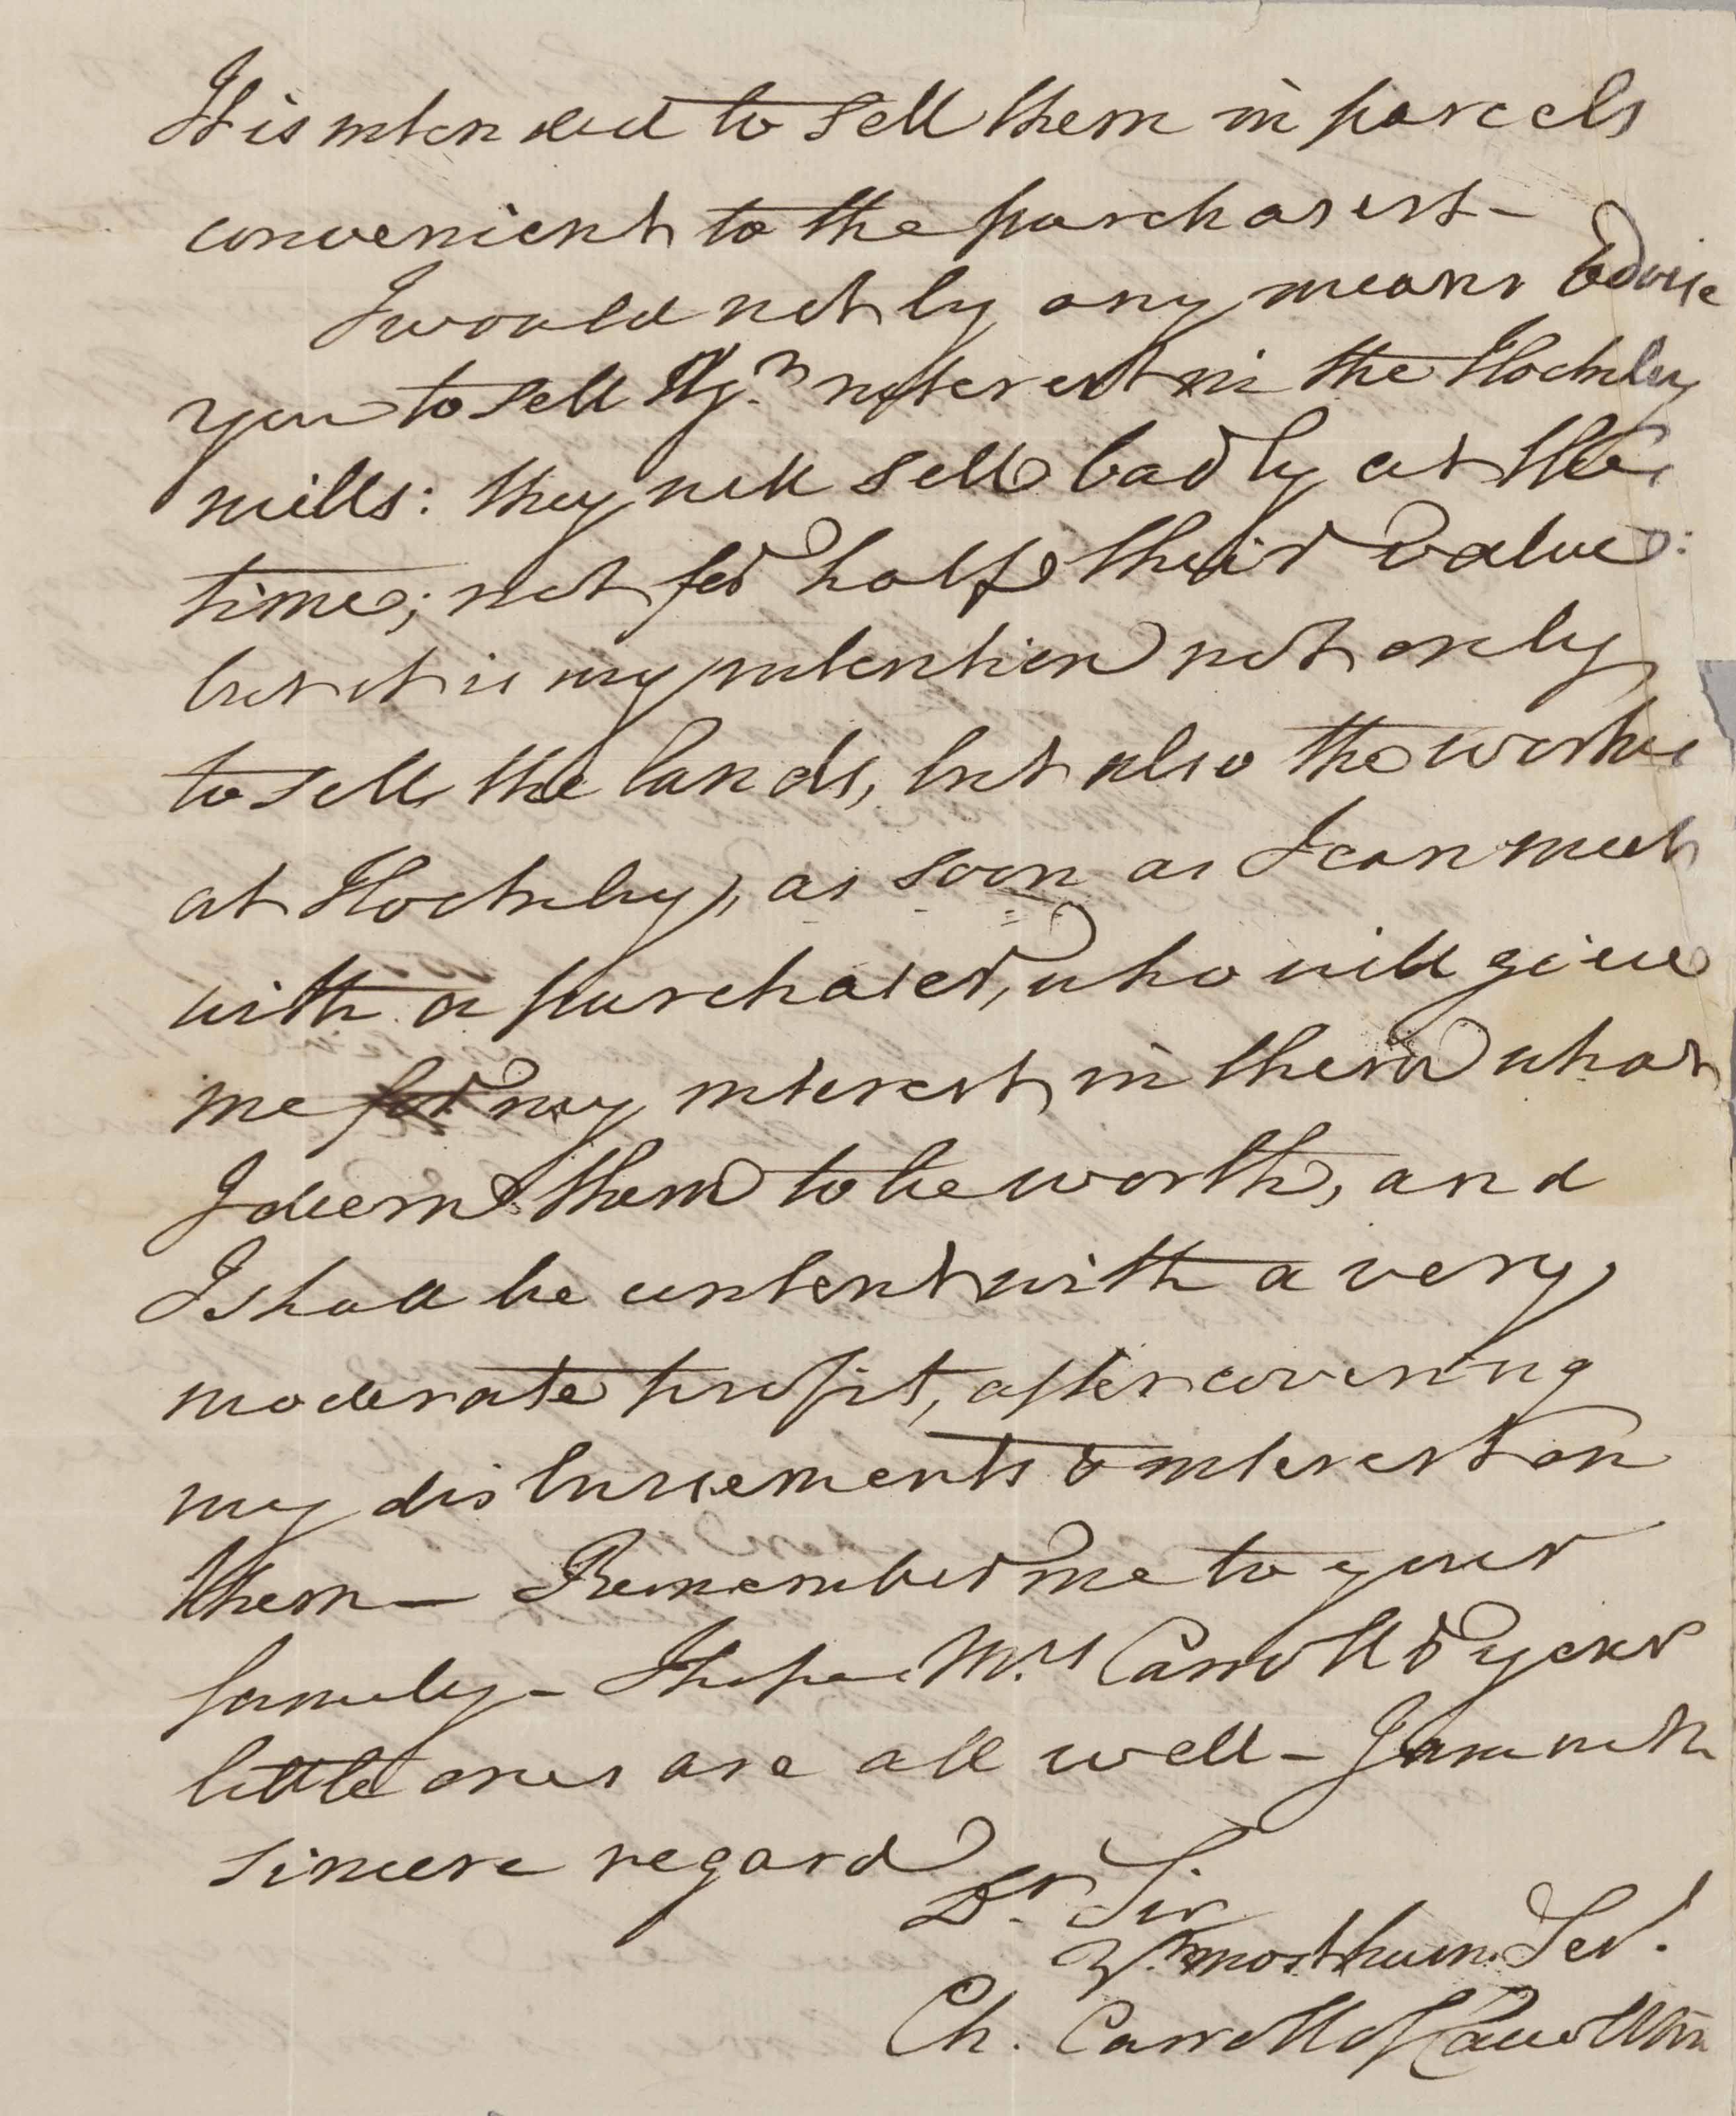 It is intended to sell them in parcels
convenient to the purchasers –
I would not by any means advise
you to sell yr. interest in the Hockley
mills: they will sell badly at this
time; not for half their value:
but it is my intention not only
to sell the lands, but also the works
at Hockley, as soon as I can meet
with a purchaser, who will give
me for my interest in them what
I deem them to be worth, and
I shall be content with a very
moderate profit, after covering
my disbursements & interest on
them – Remember me to your
family – I hope Mrs Carroll & your
little ones are all well – I am with
sincere regard
Dr. Sir
Yr. most hum. Ser.
Ch. Carroll of Carrollton